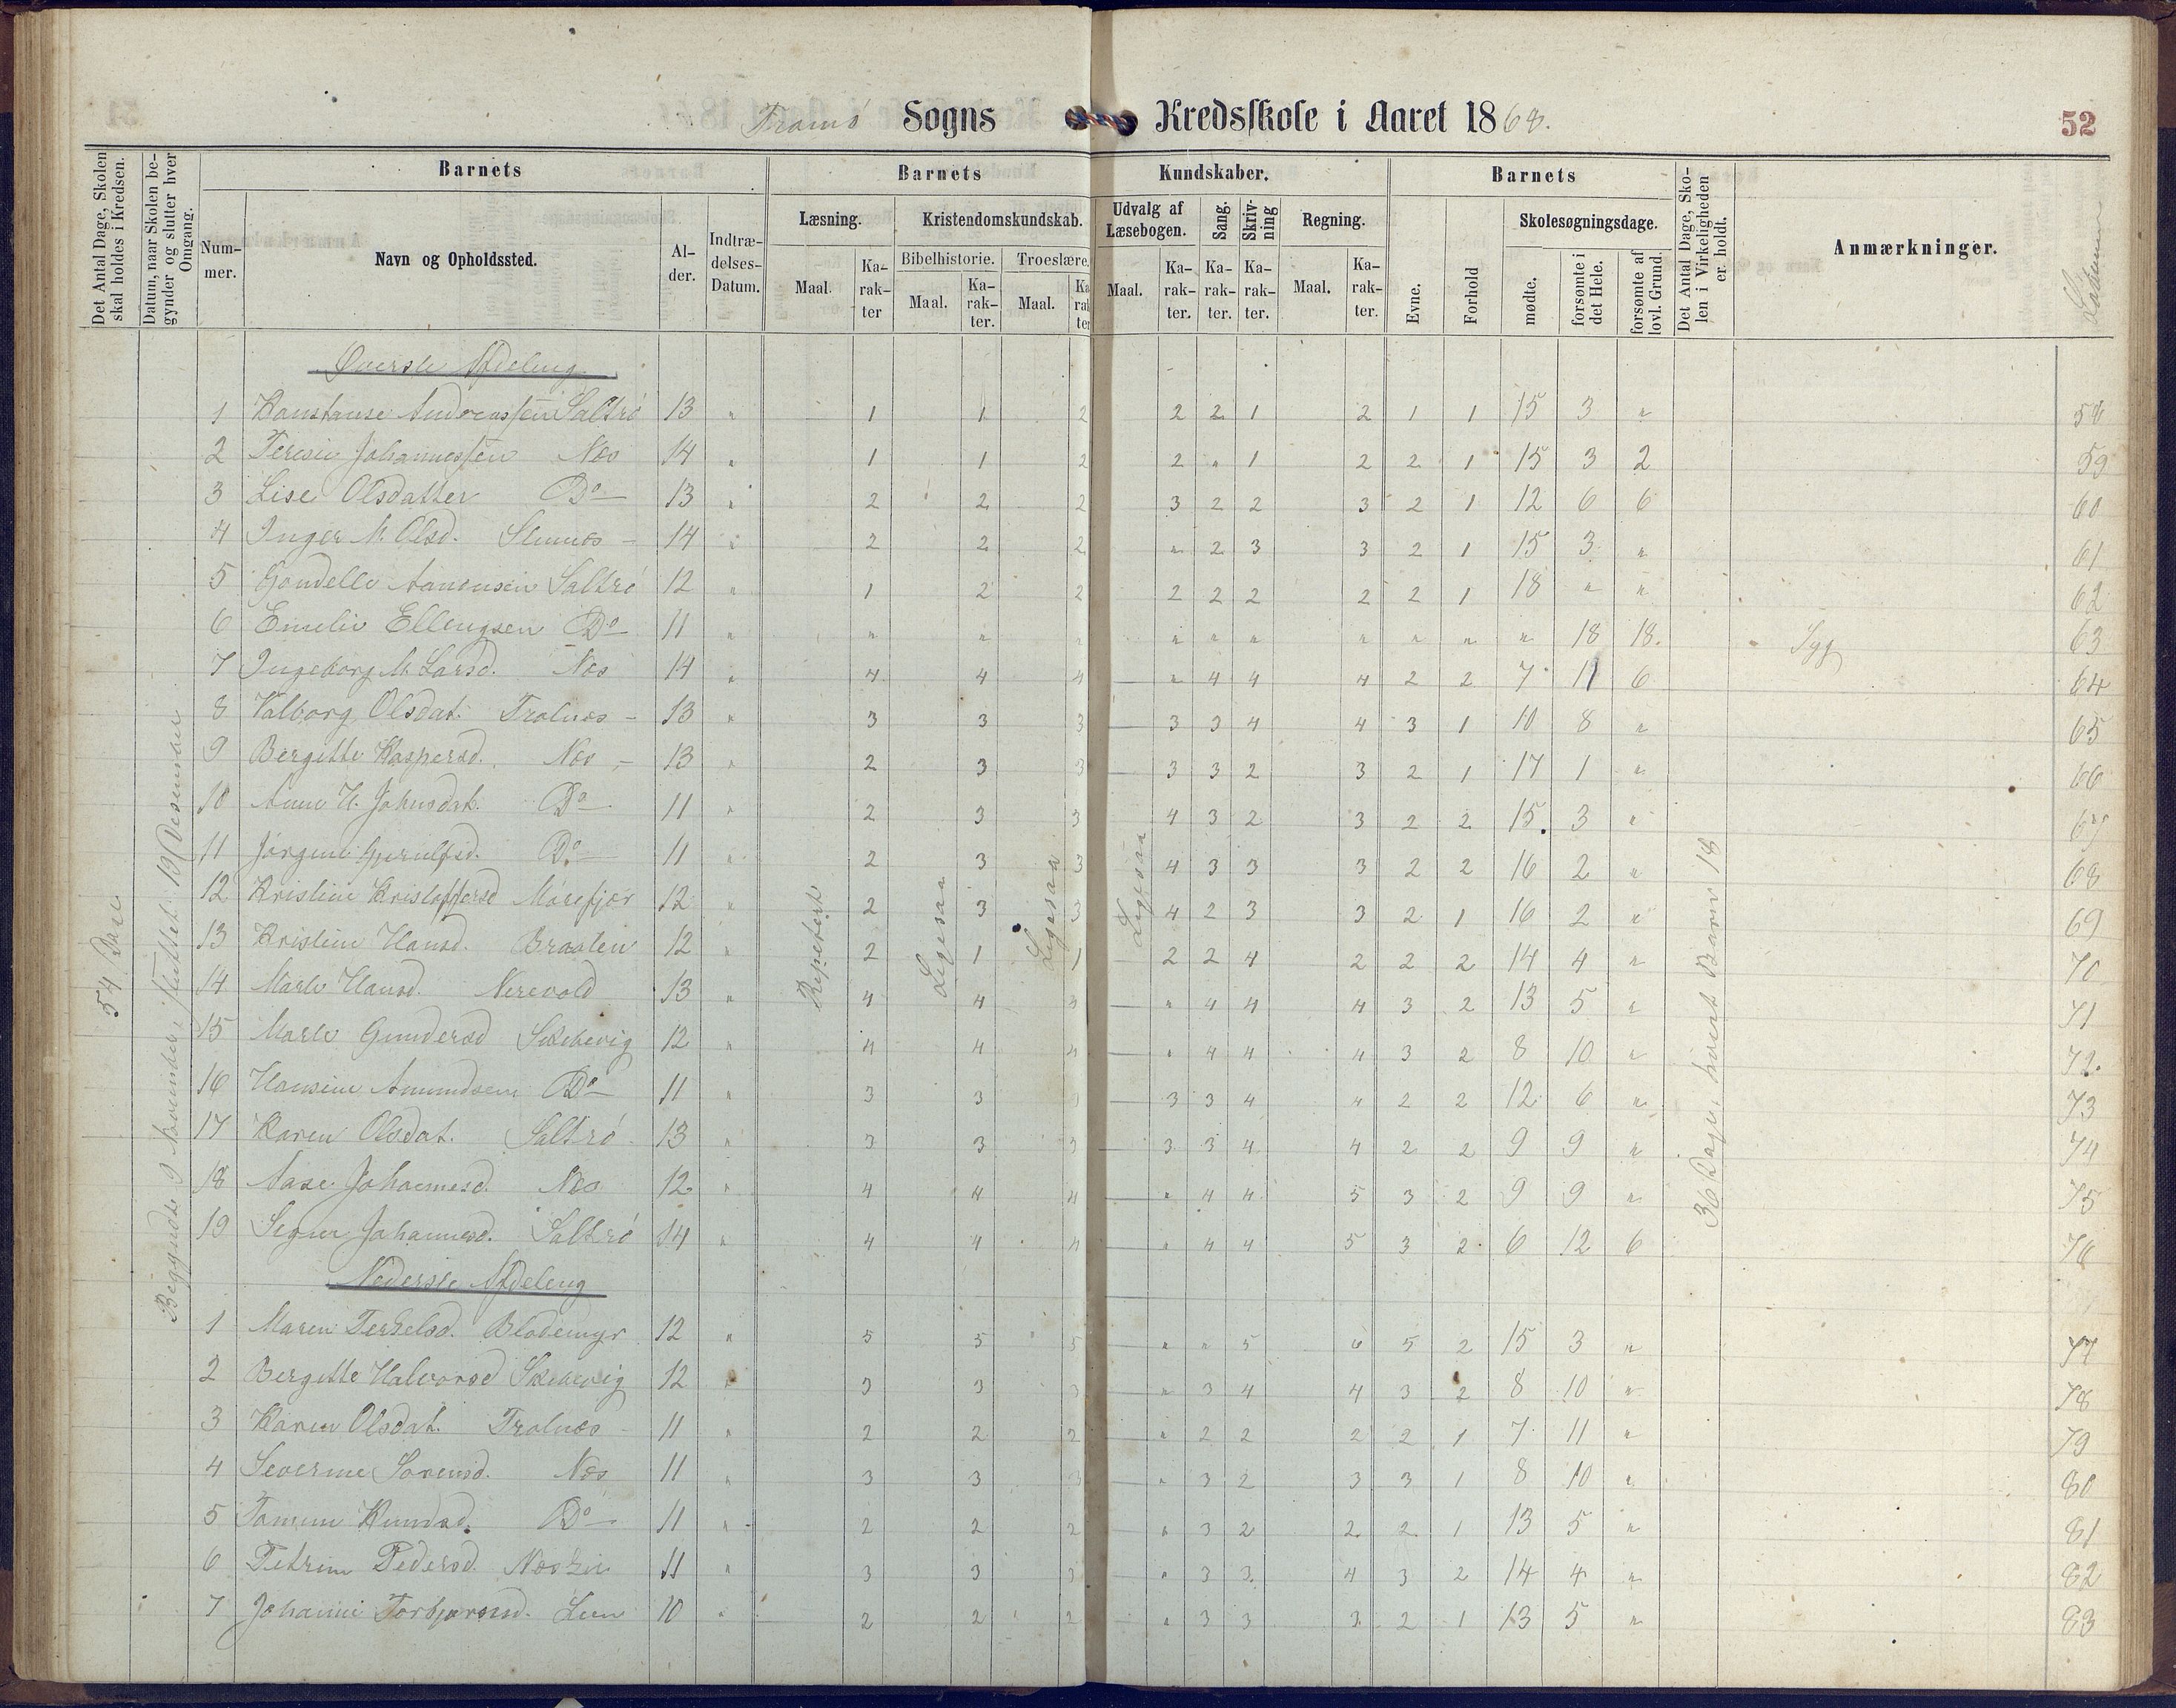 Tromö Sogns Kredsskole i Aaret 1868.
52
Det Antal Dage, Skolen skal holdes i Kredsen.
Datum, naar Skolen begynder og slutter hver Omgang.
Barnets
Nummer.
Navn og Opholdssted.
Alder.
Indtrædelses-Datum.
Barnets Kundskaber.
Læsning.
Maal.
Karakter
Kristendomskundskab.
Bibelhistorie.
Maal.
Karakter.
Troeslære.
Maal.
Karakter
Udvalg af Læsebogen.
Maal.
Karakter.
Sang.
Karakter.
Skrivning
Karakter.
Regning.
Maal.
Karakter.
Barnets
Evne.
Forhold
Skolesøgningsdage.
mødte.
forsømte i det Hele.
forsømte af lovl. Grund.
Det Antal Dage, Skolen i Virkeligheden er holdt.
Anmærkninger.
54 Dage
Begyndte 9 November, sluttet 19 Desember
Repetert
Ligesaa
Ligesaa
Ligesaa
36 Dage, hvert Barn 18
Øverste Afdeling
1 Konstanse Andreassen Saltrö 13 " 1 1 2 2 2 1 2 1 1 15 3 " 58
2 Teresie Johannessen Næs 14 " 1 1 2 2 " 1 2 2 1 15 3 2 59
3 Lise Olsdatter Do 13 " 2 2 2 3 2 2 3 2 1 12 6 6 60
4 Inger M. Olsd. 14 " 2 2 2 " 2 3 3 2 1 15 3 " 61
5 Aanonsen Saltrö 12 " 1 2 2 2 2 2 2 2 1 18 " " 62
6 Emelie Ellingsen Do 11 " " " " " " " " " " " 18 18. Syg 63
7 Ingeborg M. Larsd. Næs 14 " 4 4 4 " 4 4 4 2 2 7 11 6 64
8 Valborg Olsdat. Trolnæs 13 " 3 3 3 3 3 4 4 3 1 10 8 " 65
9 Bergitte Kaspersd. Næs 13 " 2 3 3 3 3 2 3 2 1 17 1 " 66
10 Anne H. Johnsdat. Do 11 " 2 3 3 4 3 2 3 2 2 15. 3 " 67
11 Jörgine Do 11 " 2 3 3 4 3 3 3 2 2 16 2 " 68
12 Kristine Kristoffersd Mörefjær 12 " 2 3 3 4 2 3 3 2 1 16 2 " 69
13 Kristine Hansd. Braaten 12 " 2 1 1 2 2 4 2 2 2 14 4 " 70
14 Marte Hansd. Nerevold 13 " 4 4 4 " 4 4 4 3 2 13 5 " 71
15 Marte Gundersd Skibevig 12 " 4 4 4 " 4 4 4 3 2 8 10 " 72.
16 Hansine Amundsen Do 11 " 3 3 3 3 4 4 2 2 12 6 " 73
17 Karen Olsdat. Saltrö 13 " 3 3 3 3 3 4 4 2 2 9 9 " 74
18 Aase Johannesd. Næs 12 " 4 4 4 " 4 4 5 3 2 9 9 " 75
19 Signe Johannesd. Saltrö 14 " 4 4 4 " 4 4 5 3 2 6 12 6 76
Nederste Afdeling
1 Maren Terkelsd. Blodemyr 12 " 5 5 5 " " 5 6 5 2 15 3 " 77
2 Bergitte Halvorsd Skibevig 12 " 3 3 3 " 3 4 4 3 2 8 10 " 78
3 Karen Olsdat. Trolnæs 11 " 2 2 2 " 2 2 2 2 1 7 11 " 79
4 Severine Sörensd. Næs 11 " 3 3 3 " 3 2 3 3 1 8 10 " 80
5 Knudsd. Do 11 " 2 2 2 " 3 2 2 2 1 13 5 " 81
6 Petrine Pedersd. 11 " 3 3 3 " 3 3 4 3 2 14 4 " 82
7 Johanne Torbjørnsd. 10 " 2 2 2 " 3 3 3 2 1 13 5 " 83